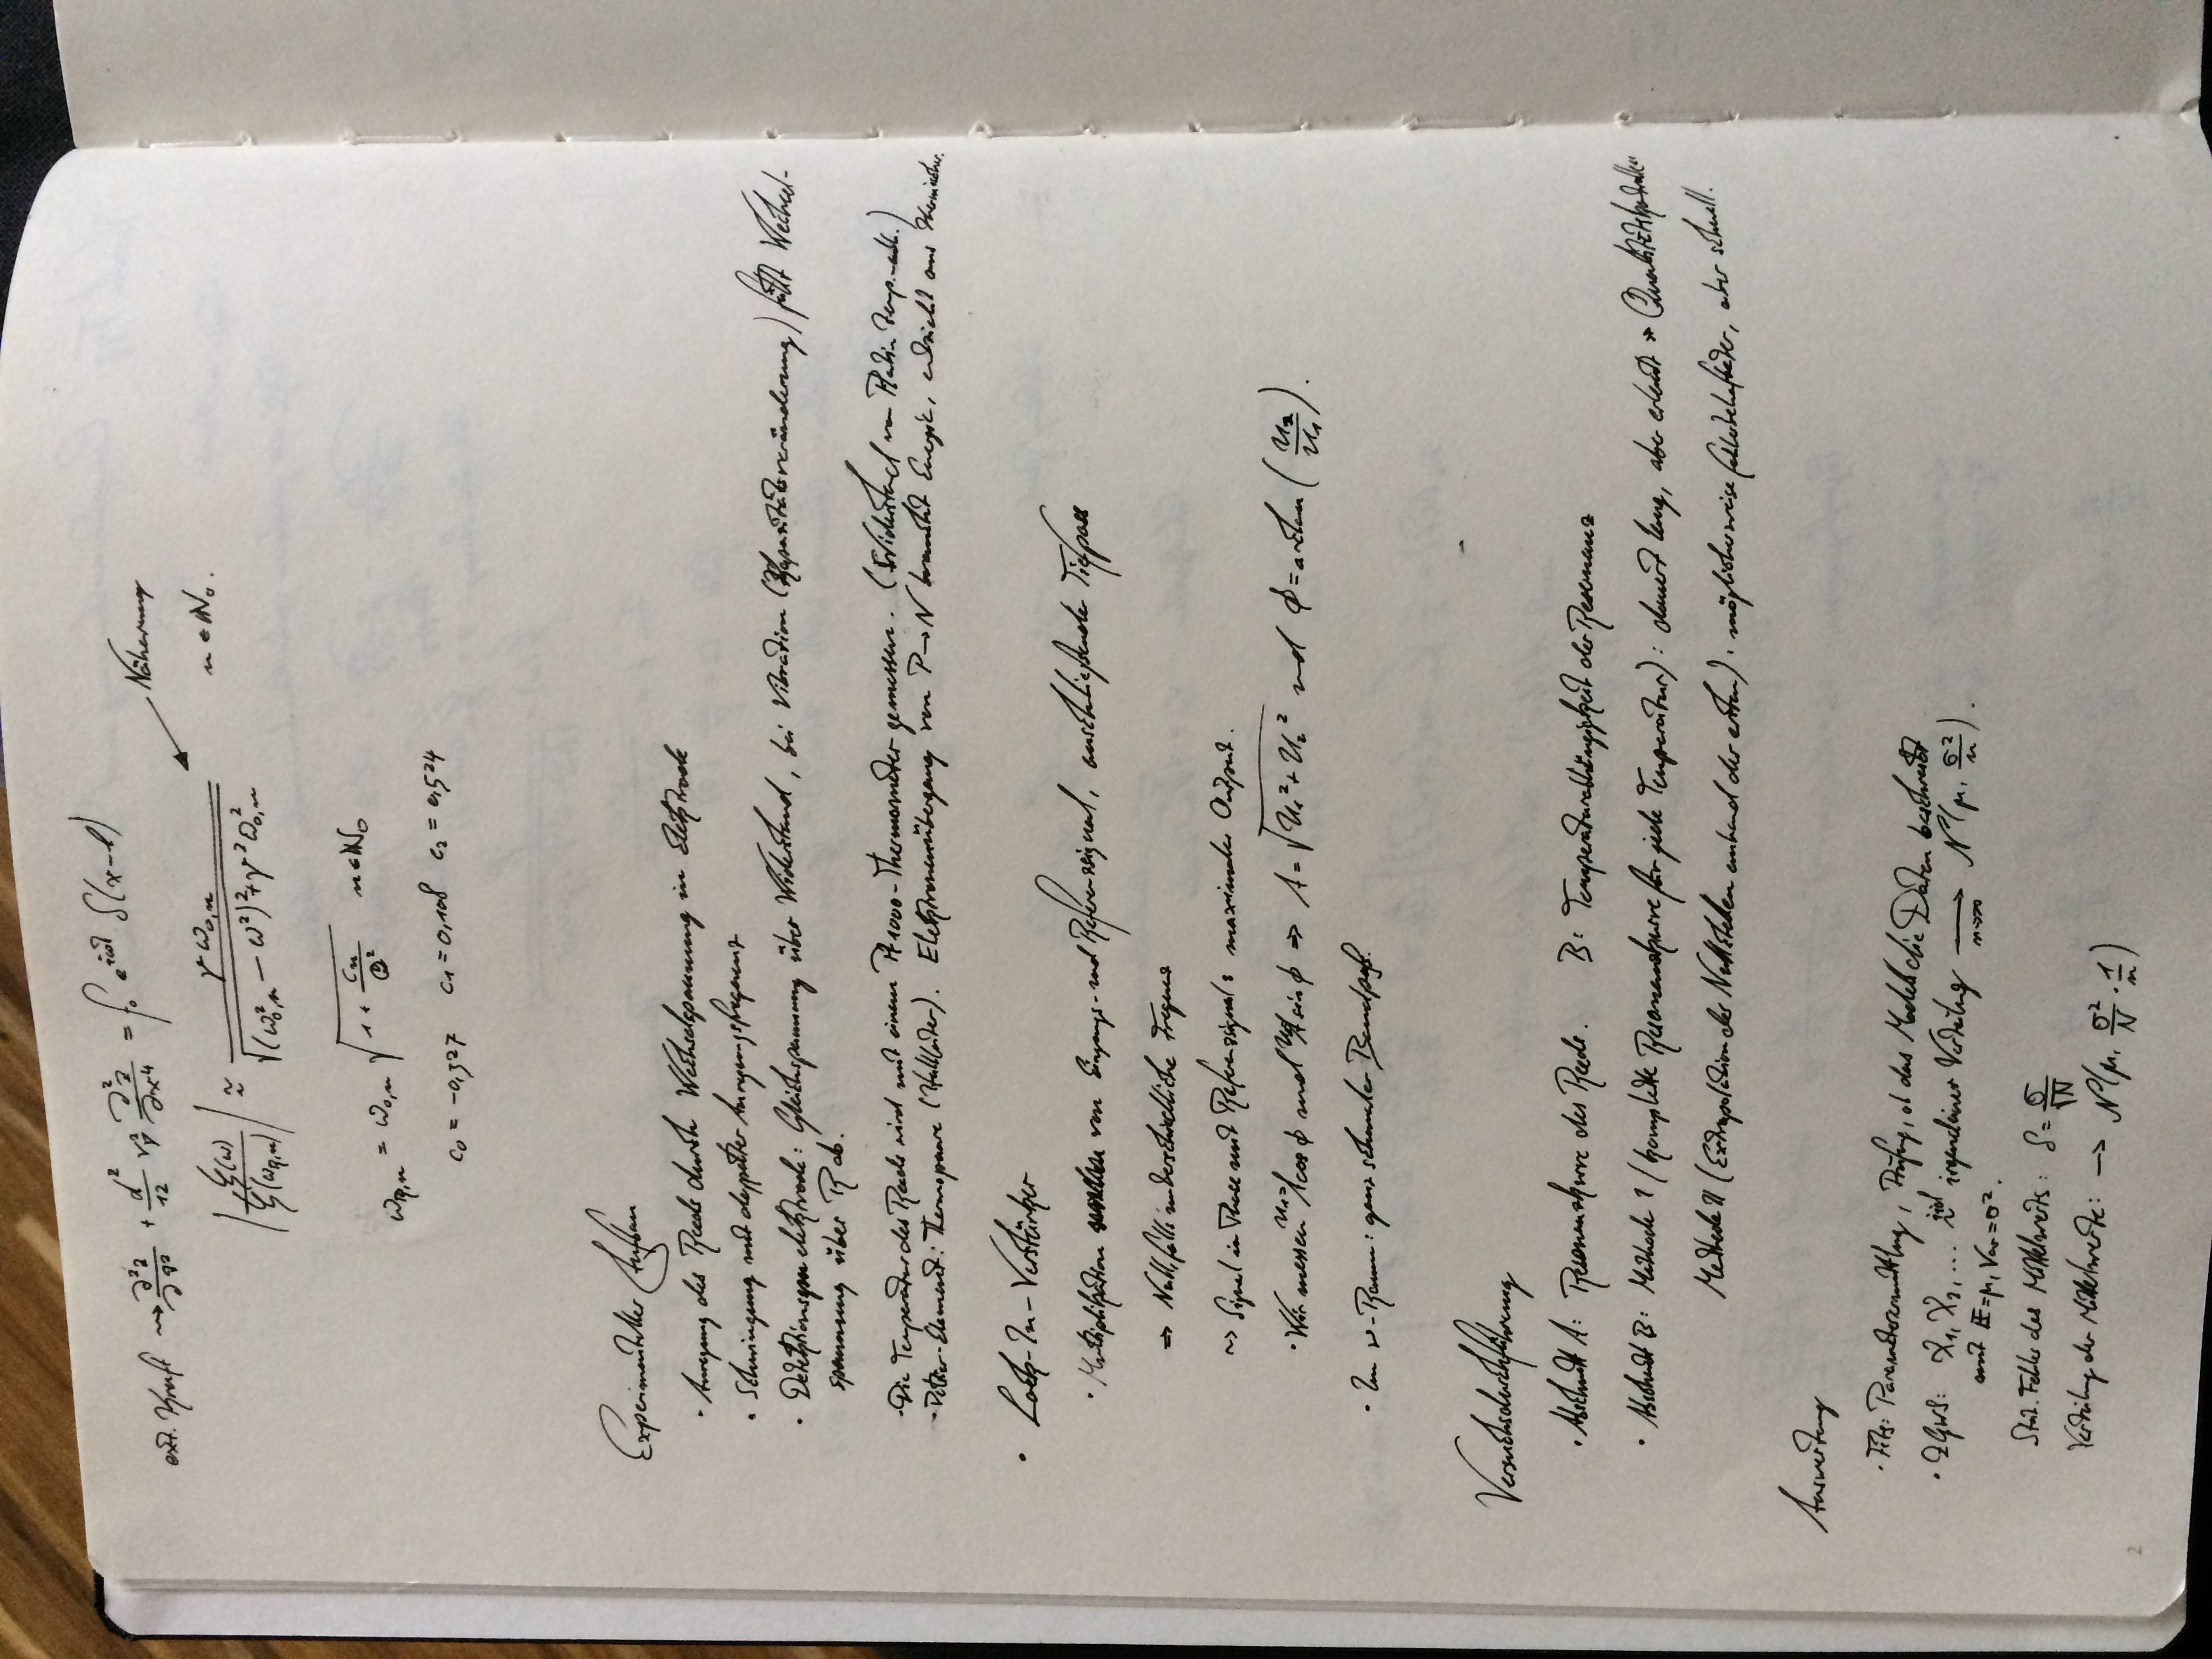 ext. Kraft ⇝ ∂²z/∂t² + d²/12 v_p² ∂²z/∂x⁴ = f₀ e^{iωt} δ(x-l)
|ζ(ω)/ζ(ω_{R,n})| ≈ γ ω_{0,n} / √((ω²_{0,n} - ω²)² + γ² ω²_{0,n}) Näherung n ∈ ℕ₀.
ω_{R,n} = ω_{0,n} √(1 + c_n/Q²) n ∈ ℕ₀
c₀ = -0,327 c₁ = 0,108 c₂ = 0,524
Experimenteller Aufbau
· Anregung des Reeds durch Wechselspannung in Elektrode
· Schwingung mit doppelter Anregungsfrequenz
· Detektionselektrode: Gleichspannung über Widerstand, bei Vibration (Kapazitätsveränderung) fällt Wechsel-
spannung über R ab.
· Die Temperatur des Reeds wird mit einem Pt1000-Thermometer gemessen. (Widerstand von Platin temp.-abh.)
- Peltier-Element: Thermopaare (Halbleiter). Elektronenübergang von P→N braucht Energie, entzieht aus
· Lock-In-Verstärker
· Multiplikation von Eingangs- und Referenzsignal, anschließende Tiefpass
⇒ Null, falls unterschiedliche Frequenz
⇝ Signal in Phase mit Referenzsignal: maximaler Output.
· Wir messen U₁ = A cos ϕ und U₂ = A sin ϕ ⇒ A = √(U₁² + U₂²) und ϕ = arctan(U₂/U₁).
· Im ω-Raum: ganz schmaler Bandpaß.
Versuchsdurchführung
· Abschnitt A: Resonanzkurve des Reeds. B: Temperaturabhängigkeit der Resonanz
· Abschnitt B: Methode I (komplette Resonanzkurve für jede Temperatur): dauert lang, aber erlaubt
Methode II (Extrapolation der Nullstellen anhand der ersten). möglicherweise fehlerbehafteter, aber schnell.
Auswertung
· Fits: Parameterermittlung, Prüfung, ob das Modell die Daten beschreibt
· ZGWS: X₁, X₂, ... iid irgendeiner Verteilung ⟶ n→∞ N(μ, σ²/n).
mit 𝔼=μ, Var=σ².
Stat. Fehler des Mittelwerts: δ = σ/√N
Verteilung der Mittelwerte: → N(μ, σ²/N · 1/n)
2